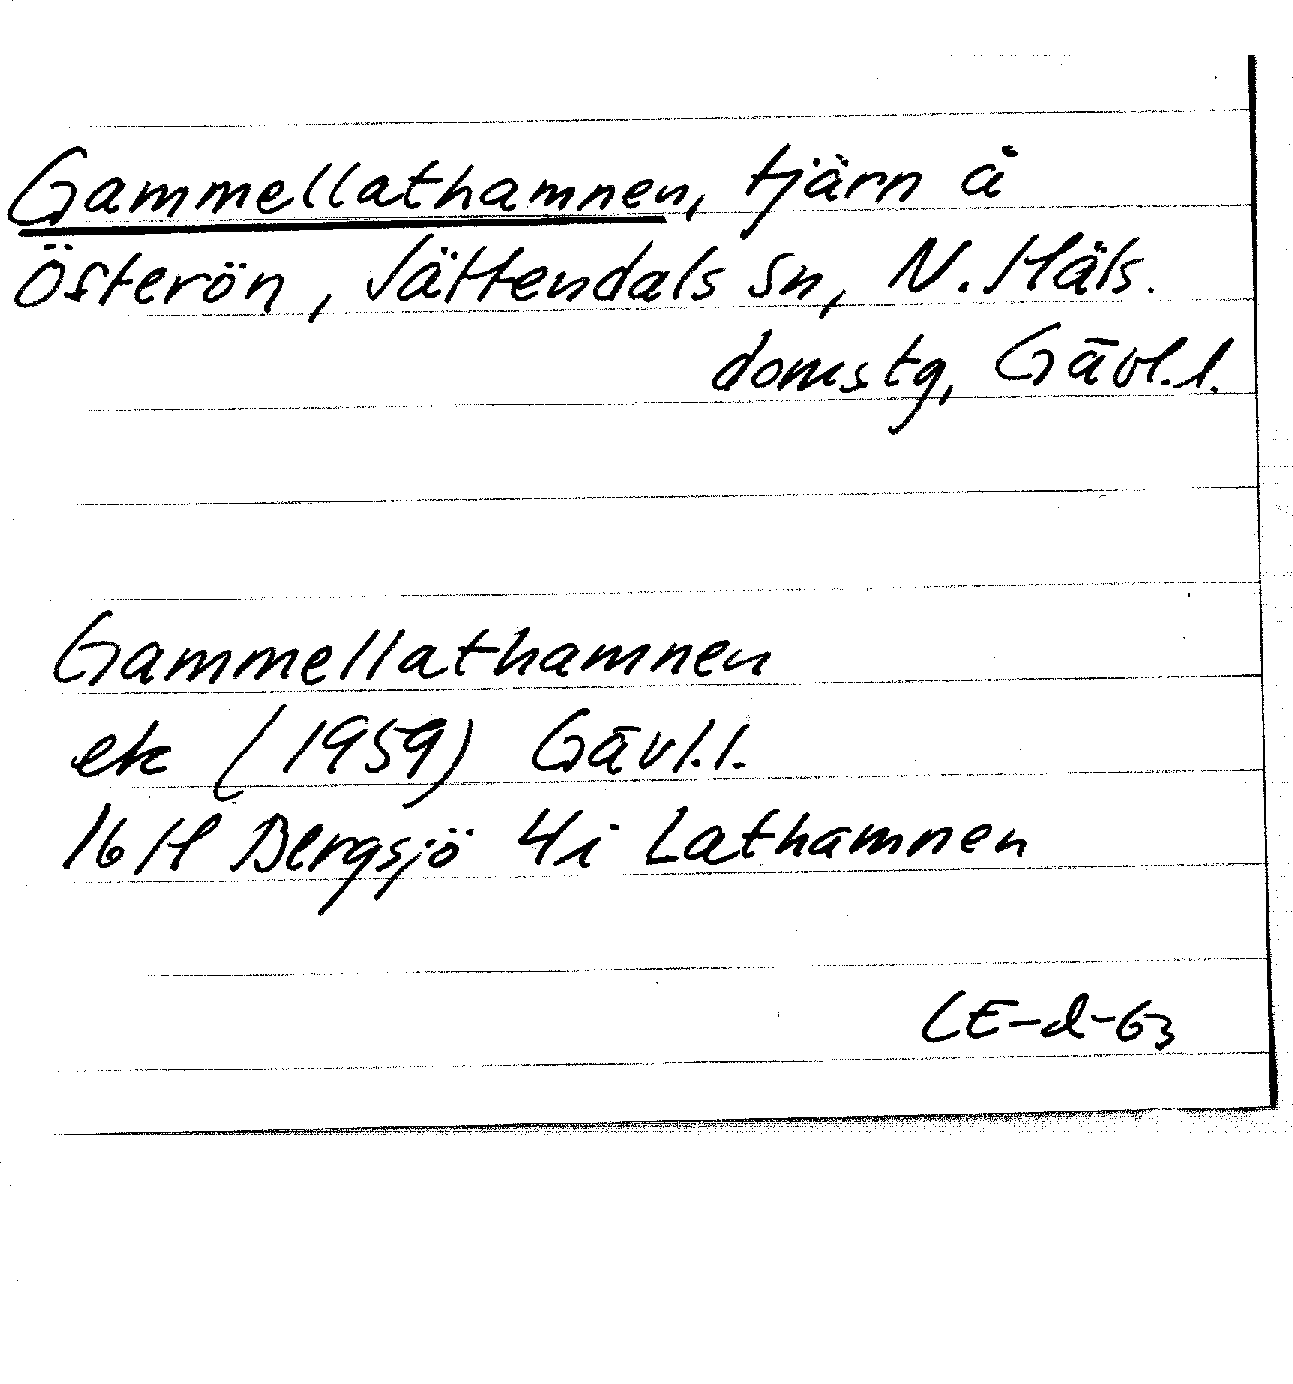 Gammellathamnen, tjärn å
Österön, Jättendals sn, N. Häls.
domstg, Gävl.l.
Gammellathamnen
ek (1959) Gävl.l.
16 H Bergsjö 4i Lathamnen
LE-d-63